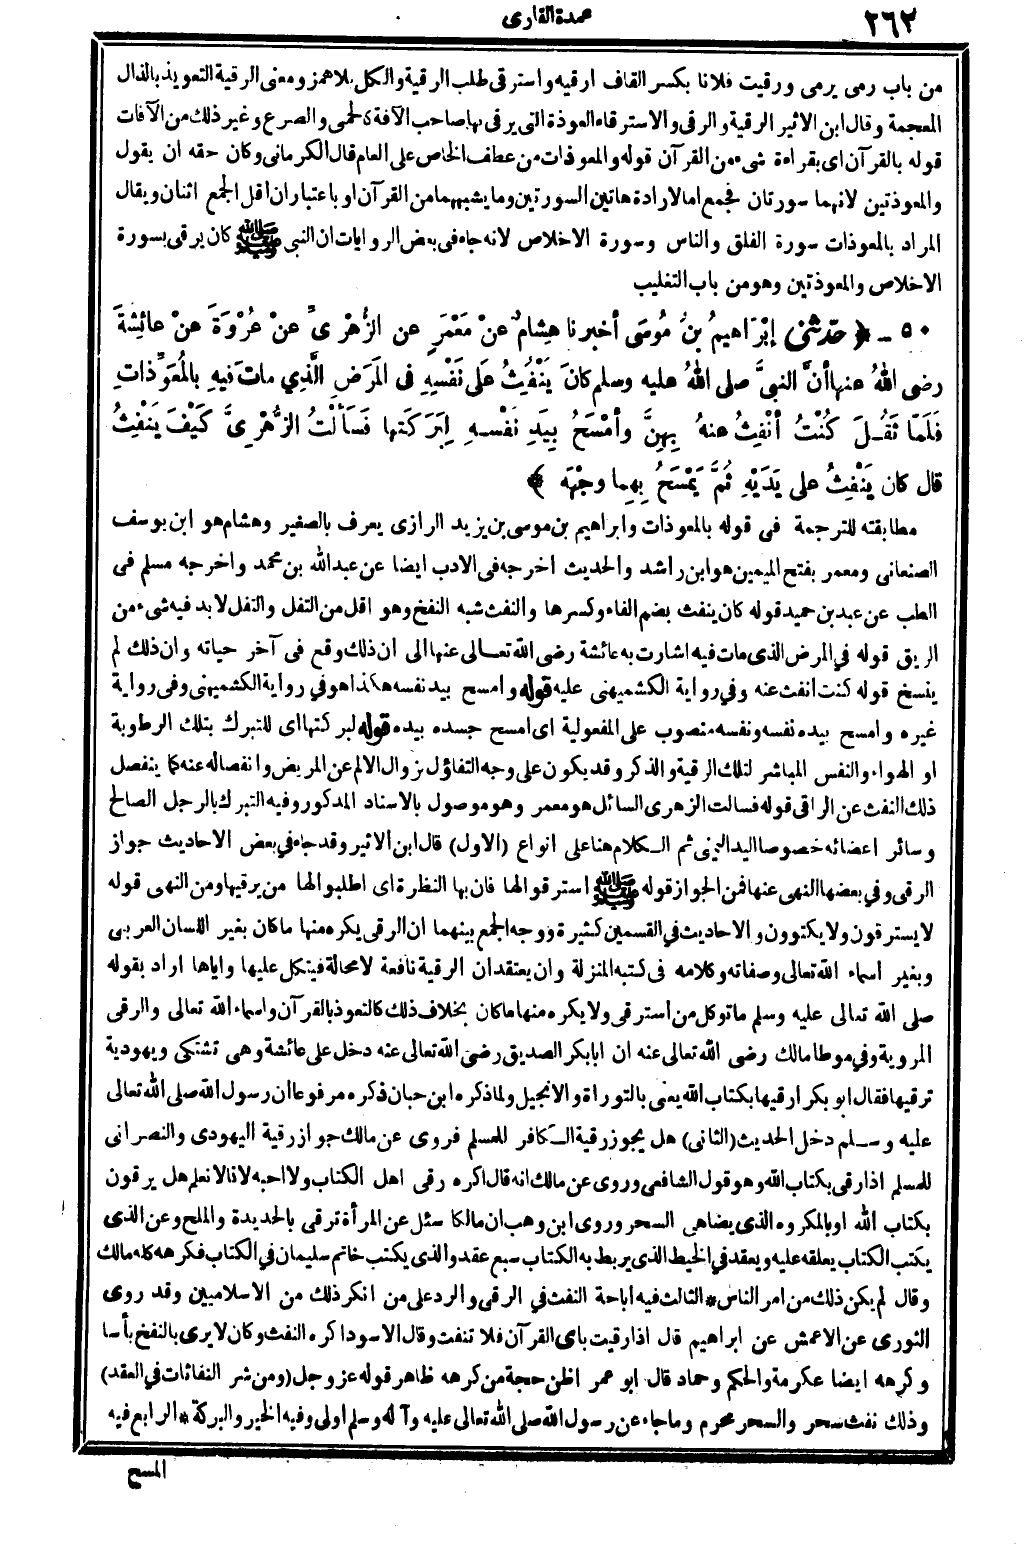 ٢٦٢
عمدة القارى
من باب رمى يرمى ورقيت فلانا بكسر القاف ارقيه واسترقى طلب الرقية والكل بلاهمز ومعنى الرقية التعويذ بالذال
المعجمة وقال ابن الاثير الرقية والرقى والاسترقاء العوذة التى يرقى بها صاحب الآفة كالحمى والصرع وغير ذلك من الآفات
قوله بالقرآن اى بقراءة شىء من القرآن قوله والمعوذات من عطف الخاص على العام قال الكرمانى وكان حقه ان يقول
والمعوذتين لانهما سورتان فجمع اما لارادة هاتين السورتين وما يشبههما من القرآن او باعتبار ان اقل الجمع اثنان ويقال
المراد بالمعوذات سورة الفلق والناس وسورة الاخلاص لانه جاء فى بعض الروايات ان النبى ﷺ كان يرقى بسورة
الاخلاص والمعوذتين وهو من باب التغليب
٥٠ ـ ﴿ حدثنى إبْرَاهِيمُ بنُ مُوسَى أخبرنا هِشامٌ عنْ مَعْمَرٍ عنِ الزُّهْرِىِّ عنْ عُرْوَةَ عنْ عائِشةَ
رضى اللهُ عنها أنَّ النبىَّ صلى اللهُ عليه وسلم كانَ يَنْفُِثُ على نَفْسِهِ فى المَرَضِ الَّذِي ماتَ فيهِ بالمُعَوِّذاتِ
فَلَمَّا ثَقُـلَ كُنْتُ أنْفِثُ عنهُ بِهِنَّ وأمْسَحُ بِيَدِ نَفْسـهِ لِبَرَكَتها فَسَألْتُ الزُّهْرِىَّ كَيْفَ يَنْفِثُ
قال كان يَنْفِثُ على يَدَيْهِ ثُمَّ يَمْسَحُ بِهِما وجْهَه ﴾
مطابقته للترجمة فى قوله بالمعوذات وابراهيم بن موسى بن يزيد الرازى يعرف بالصغير وهشام هو ابن يوسف
الصنعانى ومعمر بفتح الميمين هو ابن راشد والحديث اخرجه فى الادب ايضا عن عبدالله بن محمد واخرجه مسلم فى
الطب عن عبد بن حميد قوله كان ينفث بضم الفاء وكسرها والنفث شبه النفخ وهو اقل من التفل والتفل لابد فيه شىء من
الريق قوله في المرض الذى مات فيه اشارت به عائشة رضى الله تعـالى عنها الى ان ذلك وقع فى آخر حياته وان ذلك لم
ينسخ قوله كنت انفث عنه وفي رواية الكشميهنى عليه قوله وامسح بيد نفسه هكذا هو في رواية الكشميهنى وفى رواية
غيره وامسح بيده نفسه ونفسه منصوب على المفعولية اى امسح جسده بيده قوله لبركتها اى للتبرك بتلك الرطوبة
او الهواء والنفس المباشر لتلك الرقية والذكر وقد يكون على وجه التفاؤل بزوال الالم عن المريض وانفصاله عنه كما ينفصل
ذلك النفث عن الراقى قوله فسالت الزهرى السائل هو معمر وهو موصول بالاسناد المذكور وفيه التبرك بالرجل الصالح
وسائر اعضائه خصوصا اليد اليمنى ثم الـكلام هنا على انواع (الاول) قال ابن الاثير وقد جاء في بعض الاحاديث جواز
الرقى وفي بعضها النهى عنها فمن الجواز قوله ﷺ استرقوا لها فان بها النظرة اى اطلبوا لها من يرقيها ومن النهى قوله
لا يسترقون ولا يكتوون والاحاديث في القسمين كثيرة ووجه الجمع بينهما ان الرقى يكره منها ما كان بغير اللسان العربى
وبغير اسماء الله تعالى وصفاته وكلامه فى كتبه المنزلة وان يعتقد ان الرقية نافعة لا محالة فيتكل عليها واياها اراد بقوله
صلى الله تعالى عليه وسلم ما توكل من استرقى ولا يكره منها ما كان بخلاف ذلك كالتعوذ بالقرآن واسماء الله تعالى والرقى
المروية وفي موطا مالك رضى الله تعالى عنه ان ابابكر الصديق رضى الله تعالى عنه دخل على عائشة وهى تشتكى ويهودية
ترقيها فقال ابو بكر ارقيها بكتاب الله يعنى بالتوراة والانجيل ولما ذكره ابن حبان ذكره مرفوعا ان رسول الله صلى الله تعالى
عليه وسـلم دخل الحديث (الثانى) هل يجوز رقية الـكافر للمسلم فروى عن مالك جواز رقية اليهودى والنصرانى
للمسلم اذا رقى بكتاب الله وهو قول الشافعى وروى عن مالك انه قال اكره رقى اهل الكتاب ولا احبه لانا لا نعلم هل يرقون
بكتاب الله او بالمكروه الذى يضاهى السحر وروى ابن وهب ان مالكا سئل عن المرأة ترقى بالحديدة والملح وعن الذى
يكتب الكتاب يعلقه عليه ويعقد في الخيط الذى يربط به الكتاب سبع عقد والذى يكتب خاتم سليمان في الكتاب فكرهه كله مالك
وقال لم يكن ذلك من امر الناس * الثالث فيه اباحة النفث في الرقى والرد على من انكر ذلك من الاسلاميين وقد روى
الثورى عن الاعمش عن ابراهيم قال اذا رقيت باى القرآن فلا تنفث وقال الاسود اكره النفث وكان لا يرى بالنفخ بأسا
وكرهه ايضا عكرمة والحكم وحماد قال ابو عمر اظن حجة من كرهه ظاهر قوله عز وجل (ومن شر النفاثات في العقد)
وذلك نفث سحر والسحر محرم وما جاء عن رسول الله صلى الله تعالى عليه وآله وسلم اولى وفيه الخير والبركة * الرابع فيه
المسح